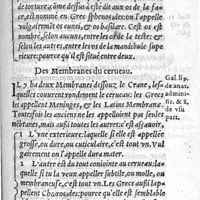 de torture, côme dessus a esté dit aux os de la fa-
ce, est nommé en Grec sphenoeides: on l'appelle
vulgairemẽt os cunei, & os basilare. Cest os est
nombré, selon aucuns, entre les os de la teste: &
selon les autres, entre les os de la mandibule supe-
rieure: pource qu'il est situé entre deux.
Des Membranes du cerueau.
Gal li 9.
de anat.
adminis-
tra. & 8.
de vsu
part.
IL y ha deux Membranes dessouz le Crane, les-
quelles couurent rondement le cerueau: les Grecs
les appellent Meninges, & les Latins Membranæ.
Toutesfois les anciens ne les appelloient pas seules
mēbranes, mais aussi toutes les autres: c'est asauoir,
1 L'vne exterieure: laquelle si elle est appellée
grosse, ou dure, ou cuticulaire, c'est tout vn. Vul-
gairement on l'appelle dura mater.
2 L'autre est du tout conioincte au cerueau: la-
quelle si tu la veux appeller subtile, ou molle, ou
membraneuse, c'est tout vn. Les Grecs aussi l'ap-
pellent Choroeides: pource qu'elle est semblable